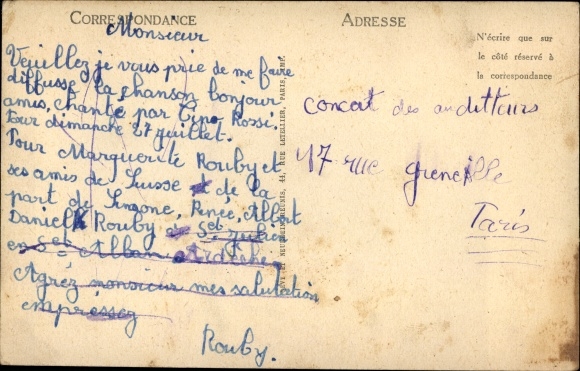 CORRESPONDANCE
Monsieur
Veuillez je vous prie de me faire
diffusse la chanson bonjour
amis, chanté par Tino Rossi.
Pour dimanche 27 juillet.
Pour Marguerite Rouby et
ses amis de Suisse et de la
part de Simone, Renée, Albert
Daniel Rouby St Julien
en St Alban Ardèche
Agréz monsieur mes salutation
empréssez
Rouby.
ADRESSE
N'écrire que sur
le côté réservé à
la correspondance
Concert des auditteurs
17 rue Grenelle
Paris
RÉUNIES, 44, RUE LETELLIER, PARIS, IMP.